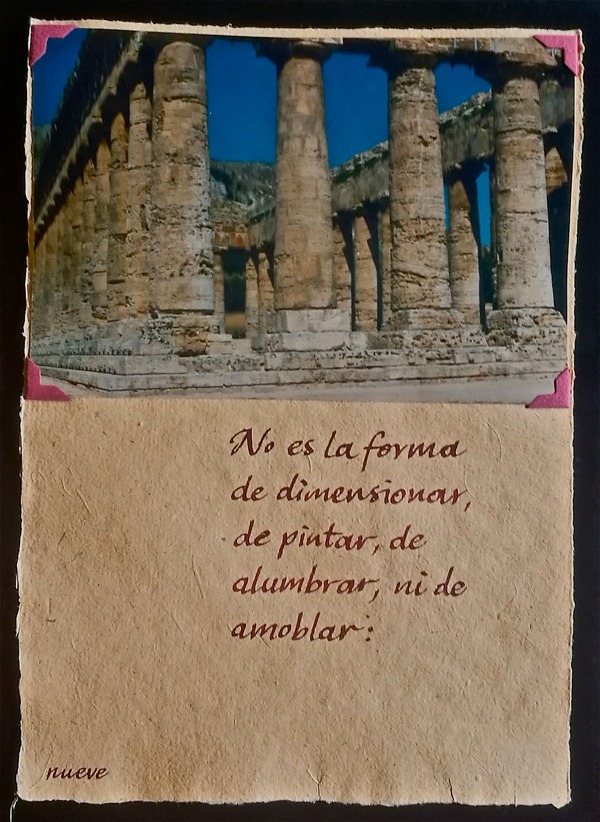 No es la forma
de dimensionar,
de pintar, de
alumbrar, ni de
amoblar:
nueve